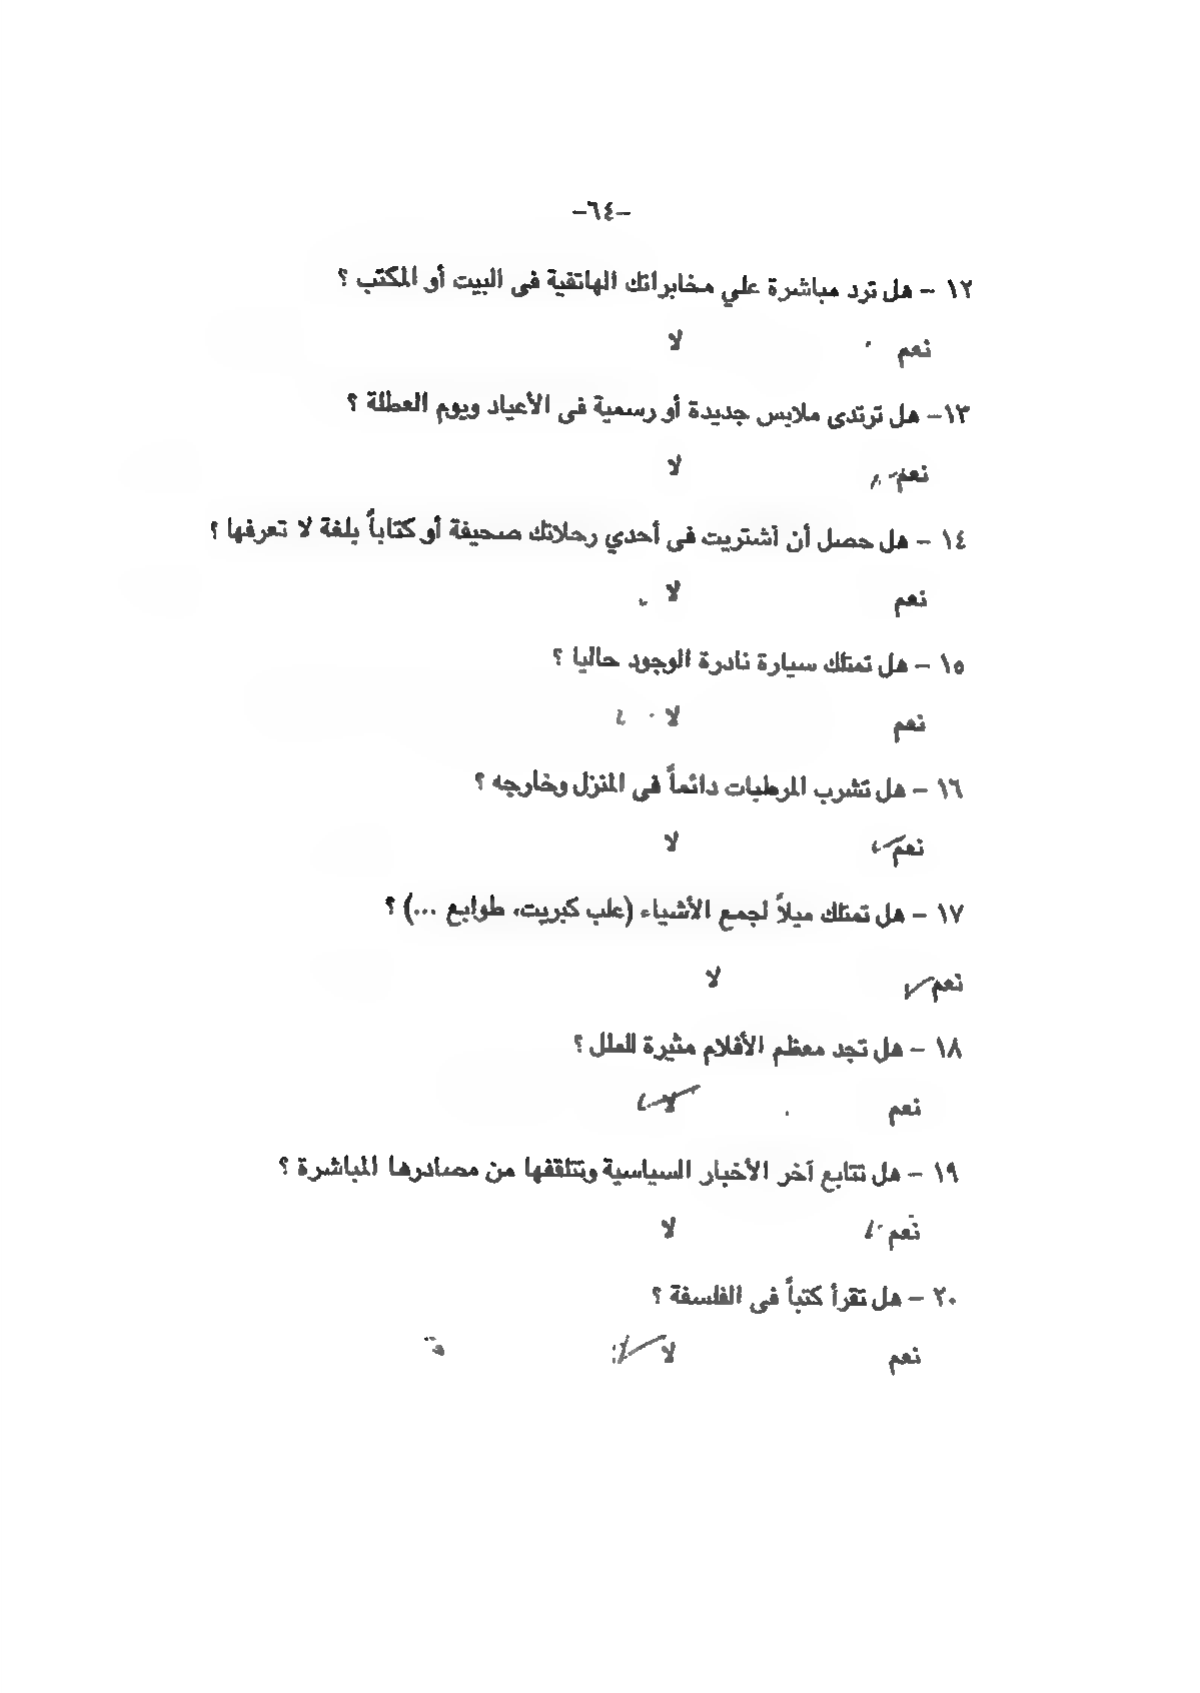 -٦٤-
١٢ - هل ترد مباشرة علي مخابراتك الهاتفية فى البيت أو المكتب ؟
نعم لا
١٣- هل ترتدى ملابس جديدة أو رسمية فى الأعياد ويوم العطلة ؟
نعم لا
١٤ - هل حصل أن اشتريت فى أحدي رحلاتك صحيفة أو كتاباً بلغة لا تعرفها ؟
نعم لا
١٥ - هل تمتلك سيارة نادرة الوجود حاليا ؟
نعم لا
١٦ - هل تشرب المرطبات دائماً فى المنزل وخارجه ؟
نعم لا
١٧ - هل تمتلك ميلاً لجمع الأشياء (علب كبريت، طوابع ...) ؟
نعم لا
١٨ - هل تجد معظم الأفلام مثيرة للملل ؟
نعم لا
١٩ - هل تتابع آخر الأخبار السياسية وتتلقفها من مصادرها المباشرة ؟
نعم لا
٢٠ - هل تقرأ كتباً فى الفلسفة ؟
نعم لا